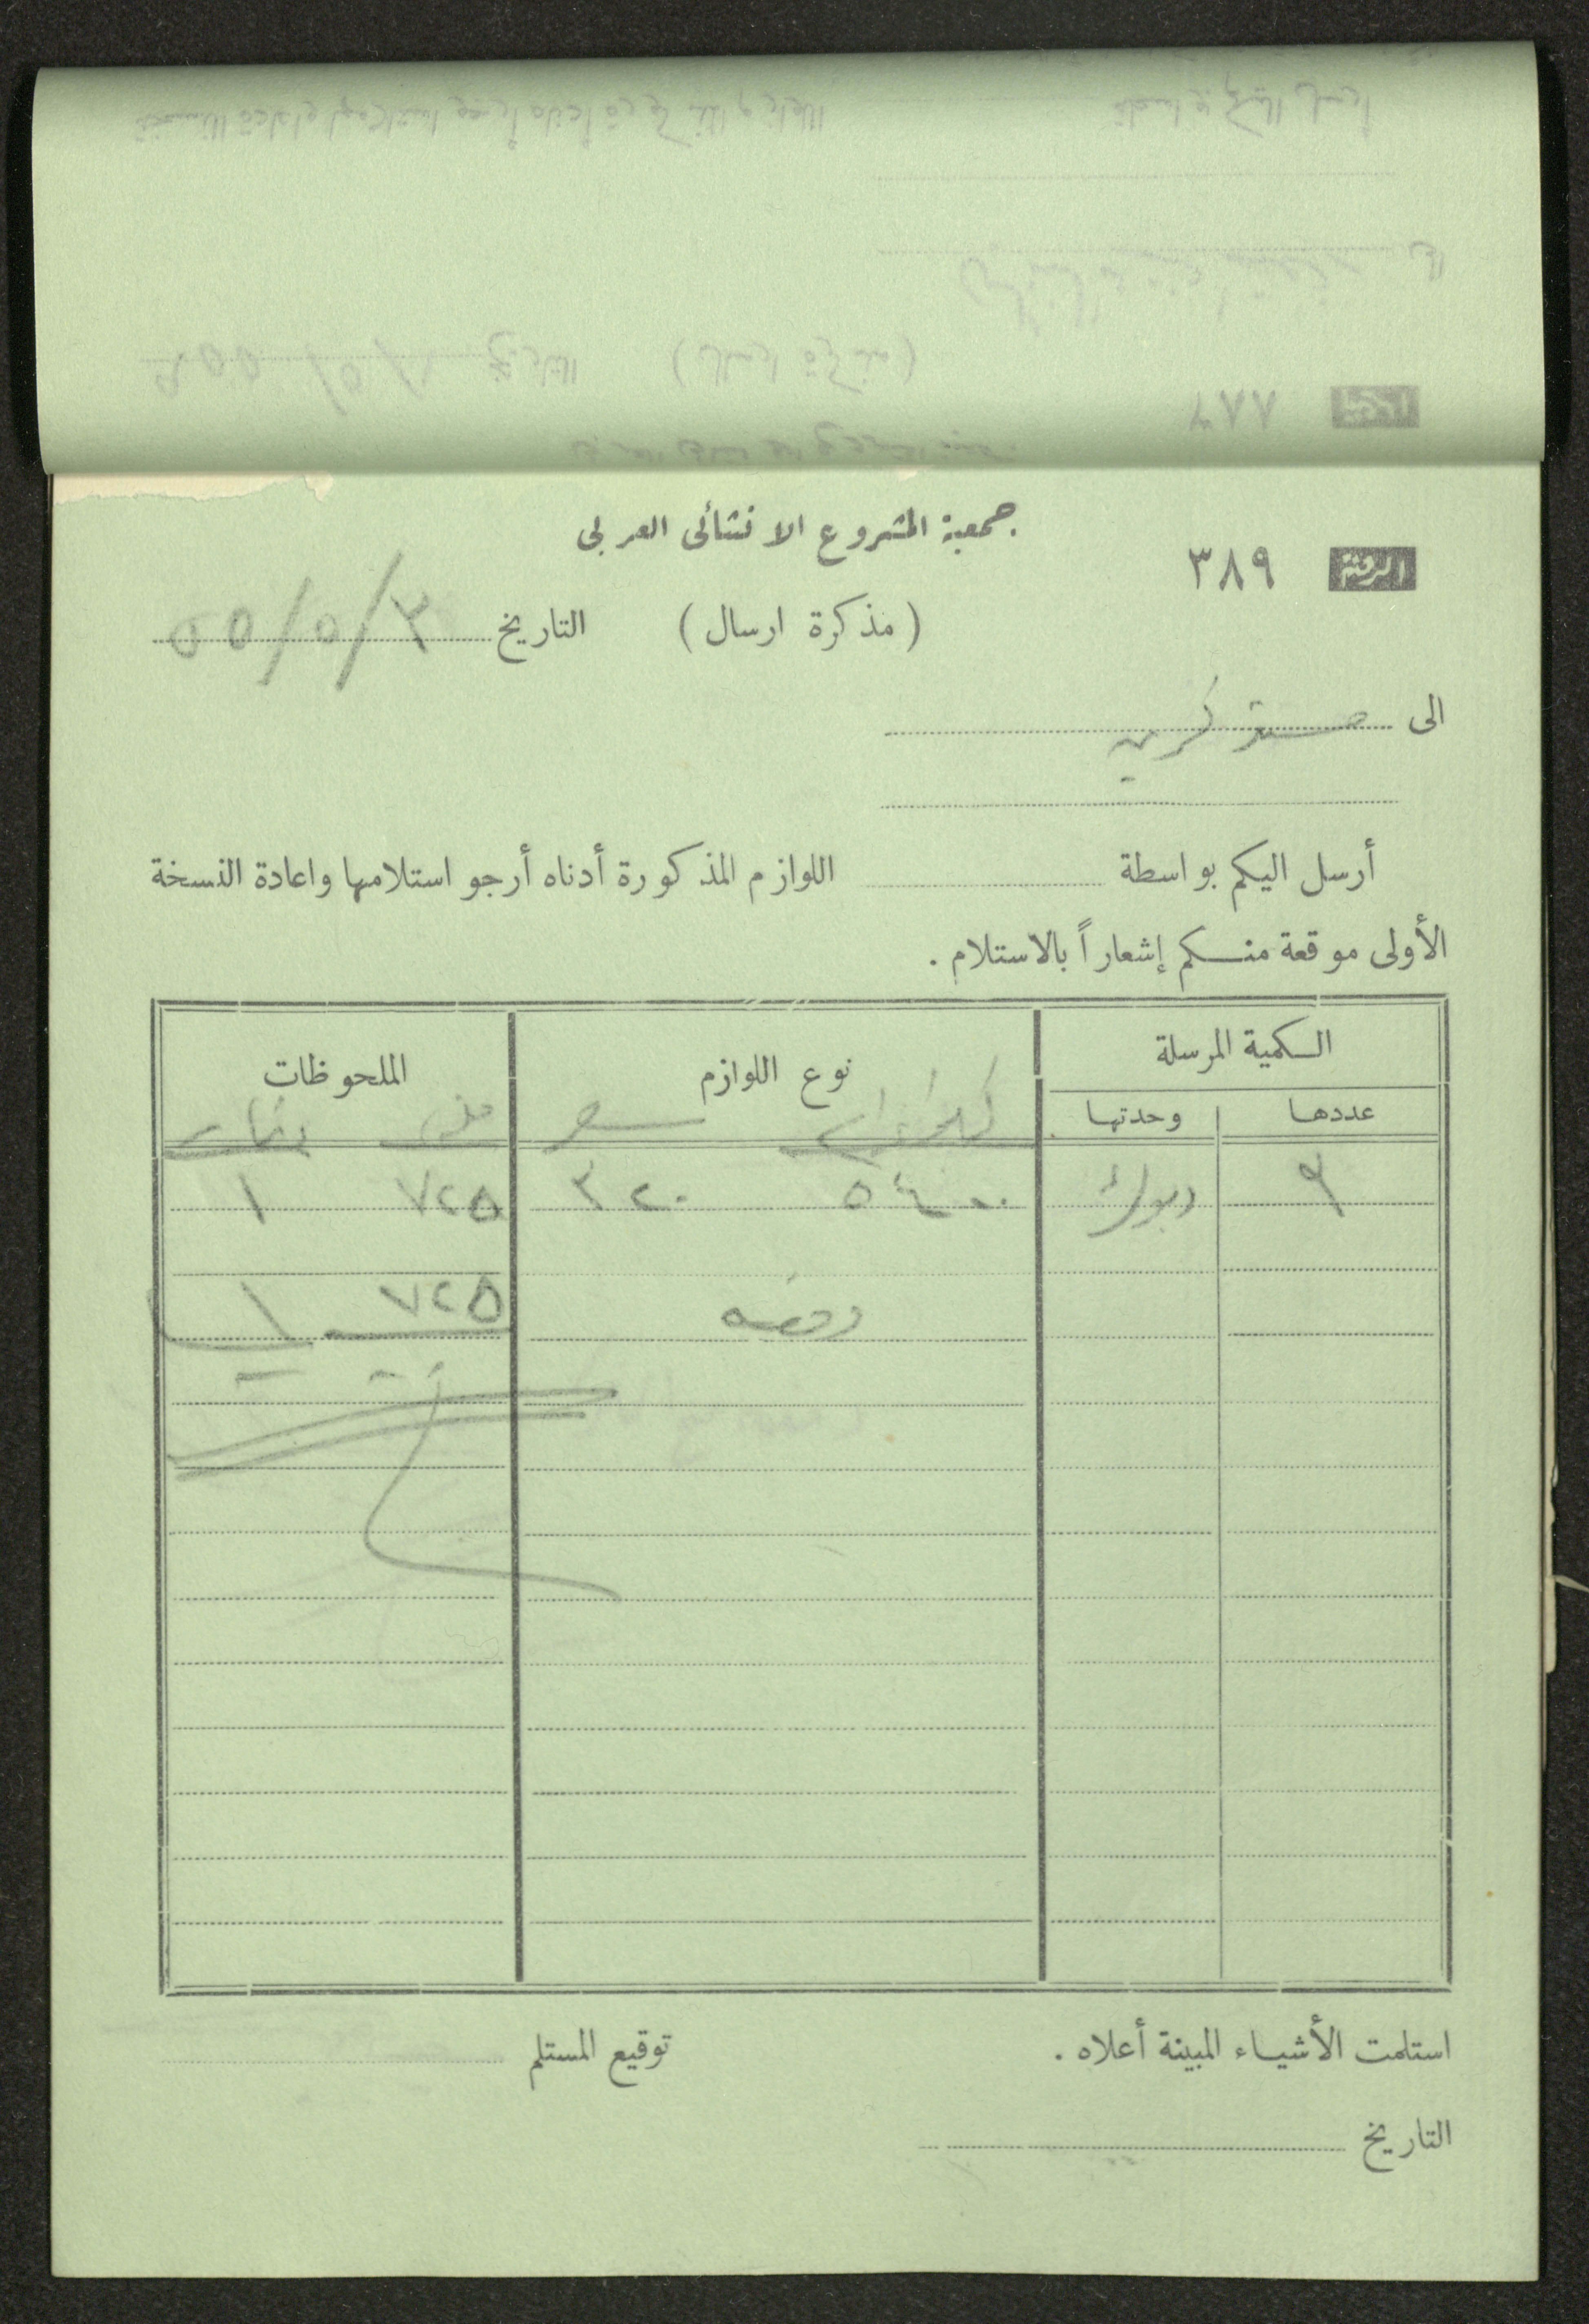 جمعية المشروع الانشائى العربى
الرقم ٣٨٩
(مذكرة ارسال) التاريخ ٢/٥/٥٥
الى مستر
أرسل اليكم بواسطة اللوازم المذكورة أدناه أرجو استلامها واعادة النسخة
الأولى موقعة منكم إشعاراً بالاستلام .
الكمية المرسلة نوع اللوازم الملحوظات
عددها وحدتها كيلوغرام سعر
٩ ديوك ٥٤٠٠ ٣٢٠ ٧٢٥ ١
٧٢٥ ١
استلمت الأشياء المبينة أعلاه . توقيع المستلم
التاريخ